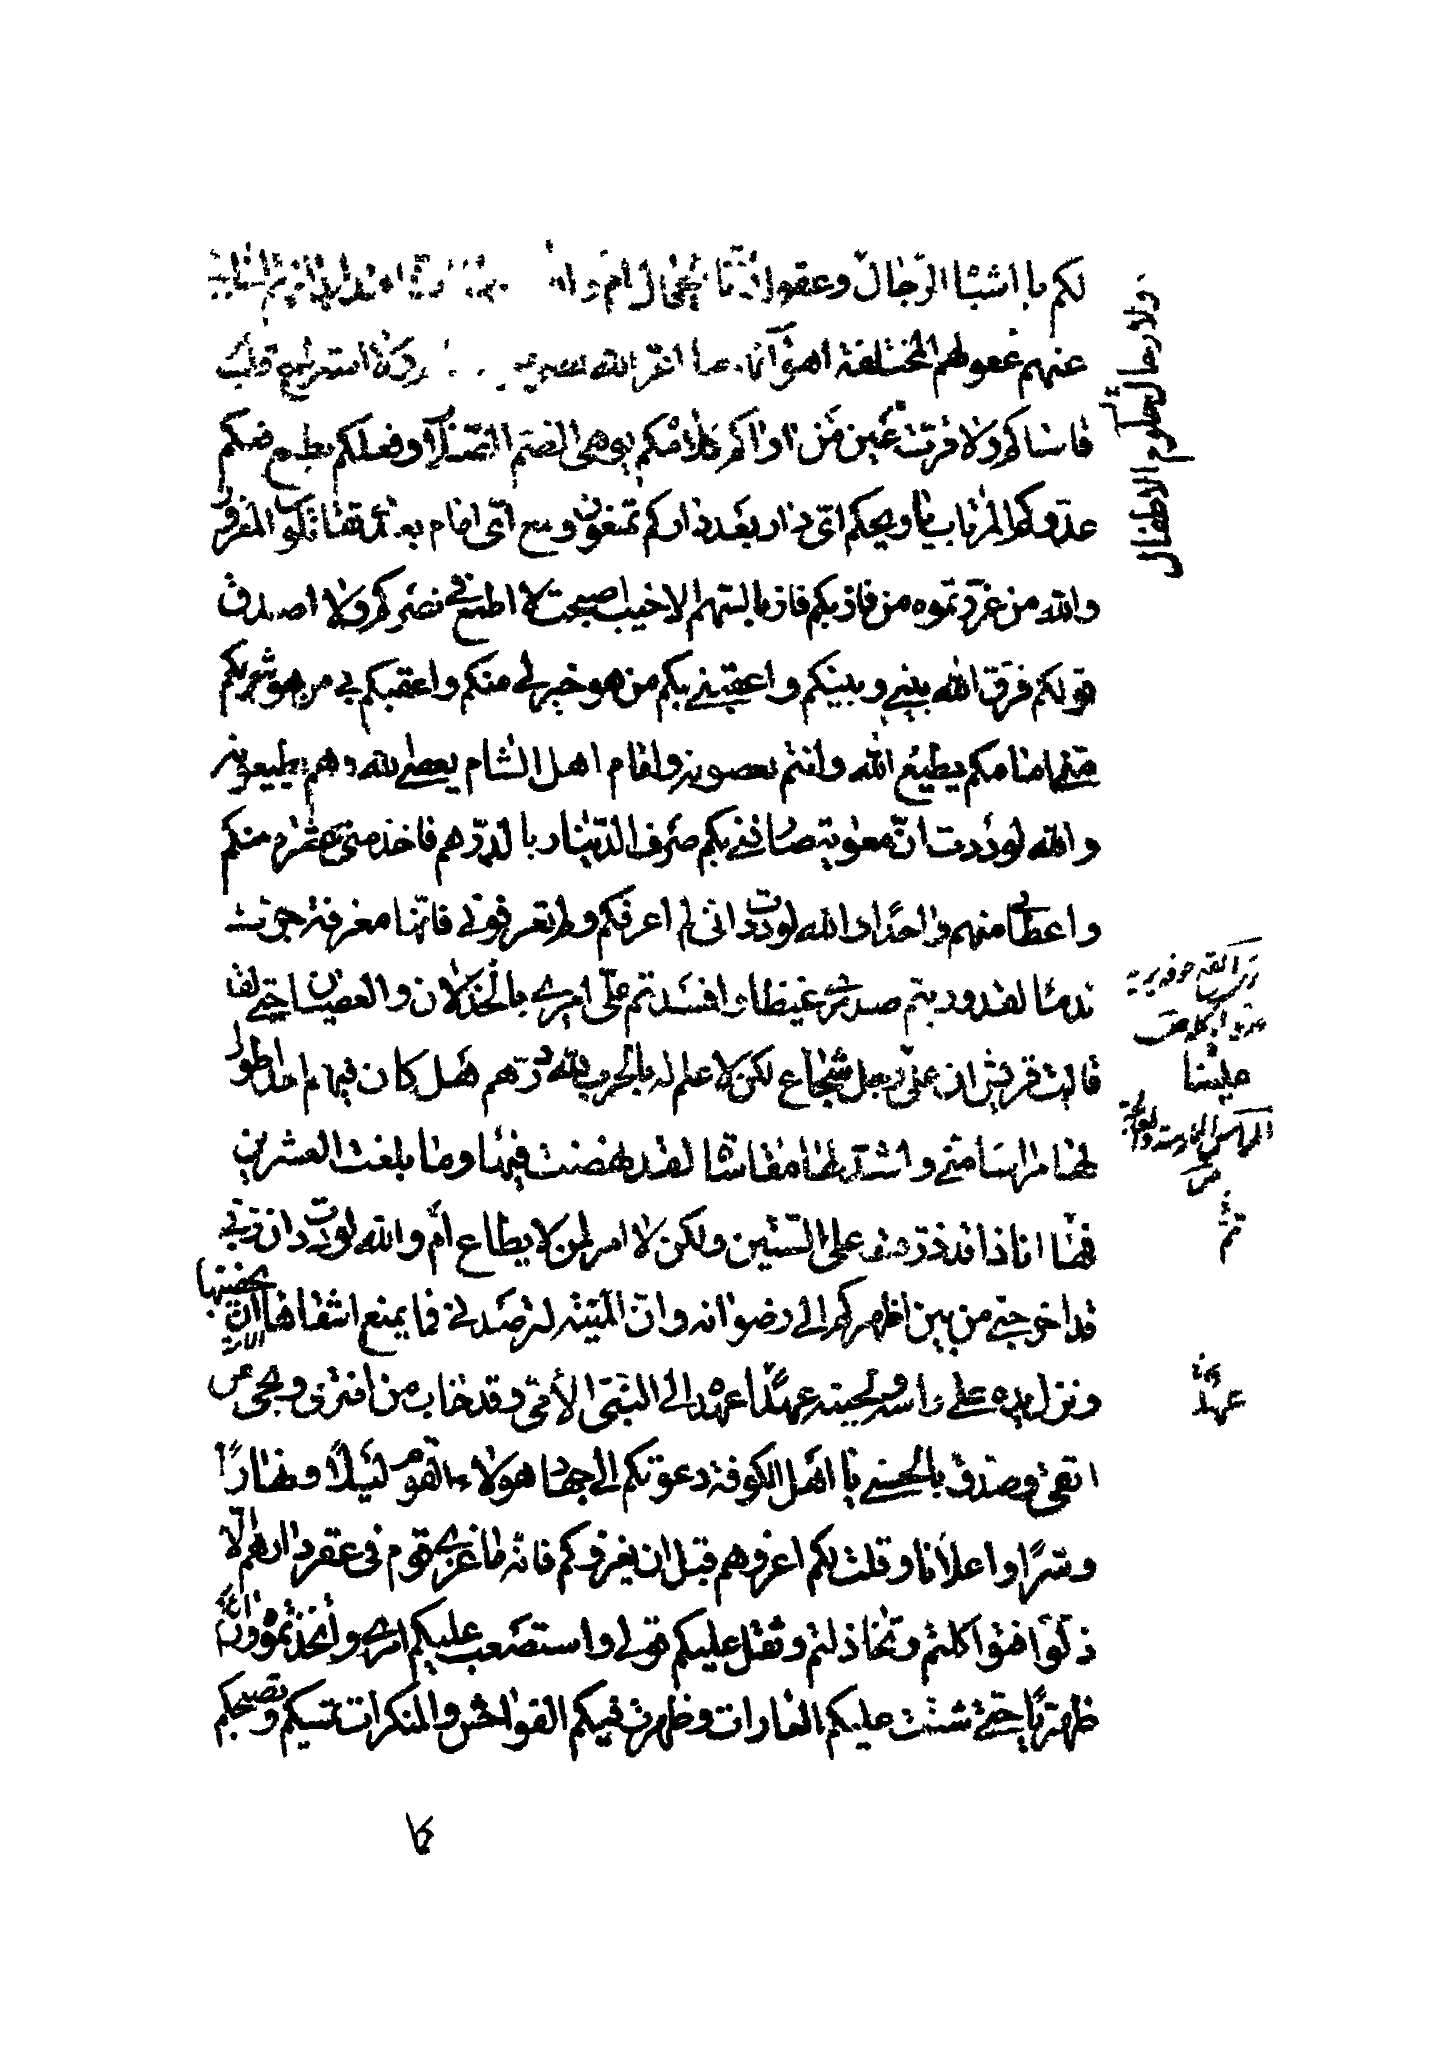 لكم يا اشباه الرّجال وعقول
عنهم عقولهم المختلفة اهوآئهم ما اعزّ الله نصر من ولا استراح قلب
قاساكم ولا قرّت عين من اواكم كلامكم يوهي الصمّ الصّلاب وفعلكم يطمع فيكم
عدوّكم المرتاب يا ويحكم ايّ دار بعد داركم تمنعون ومع ايّ امام بعدي تقاتلون المغرور
والله من غررتموه من فاز بكم فاز بالسّهم الاخيب اصبحت لا اطمع في نصركم ولا اصدق
قولكم فرّق الله بيني وبينكم واعقبني بكم من هو خير لي منكم واعقبكم بي من هو شرّ لكم
منّي امامكم يطيع الله وانتم تعصونه وامام اهل الشام يعصي الله وهم يطيعونه
والله لوددت انّ معوية صارفني بكم صرف الدّينار بالدّرهم فاخذ منّي عشرة منكم
واعطاني منهم واحدًا والله لوددت انّي لم اعرفكم ولم تعرفوني فانّها معرفة جرّت
ندمًا لقد وريتم صدري غيظا وافسدتم عليّ امري بالخذلان والعصيان حتّى لقد
قالت قريش ان عليّ رجل شجاع لكن لا علم له بالحرب لله درّهم هل كان فيهم احد اطول
لها مراسا منّي واشدّ لها مقاساة لقد نهضت فيها وما بلغت العشرين
فها انا ذا قد ذرّفت على السّتين ولكن لا امر لمن لا يطاع أم والله لوددت ان ربّي
قد اخرجني من بين اظهركم الى رضوانه وانّ المنيّة لترصدني فما يمنع اشقاها ان يخضبها
ونزل يده على رأسه ولحيته عهدًا عهده الي النّبيّ الأمّي وقد خاب من افترى ونجى من
اتقى وصدق بالحسنى يا اهل الكوفة دعوتكم الى جهاد هولاء القوم ليلًا ونهارًا
وسرًّا واعلانا وقلت لكم اغزوهم قبل ان يغزوكم فانّه ما غزي قوم في عقر دارهم الّا
ذلّوا فتواكلتم وتخاذلتم وثقل عليكم قولي واستصعب عليكم امري واتّخذتموه وراءكم
ظهريًّا حتّى شنّت عليكم الغارات وظهرت فيكم الفواحش والمنكرات تمسيكم وتصبحكم
كا
ولا رجال حلوم الاطفال
علينا
ثمّ
عهدٌ